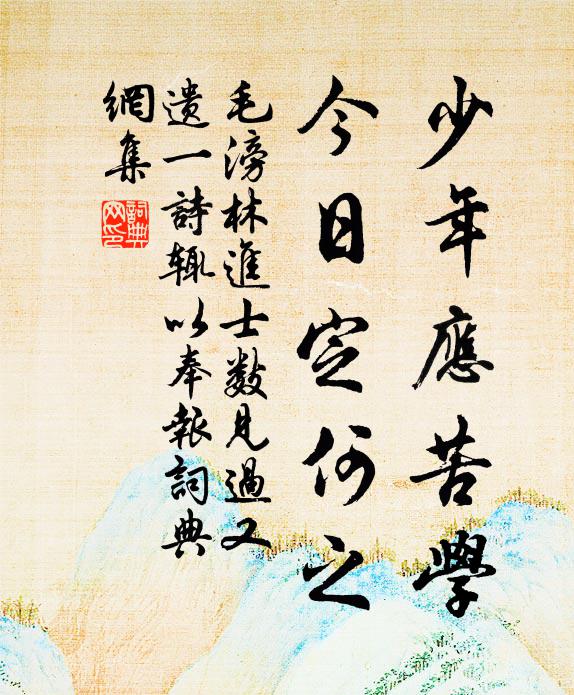 少年應苦學
今日定何之
毛滂林進士數見過又
遺一詩輒以奉報詞典
網集
詞典
网印